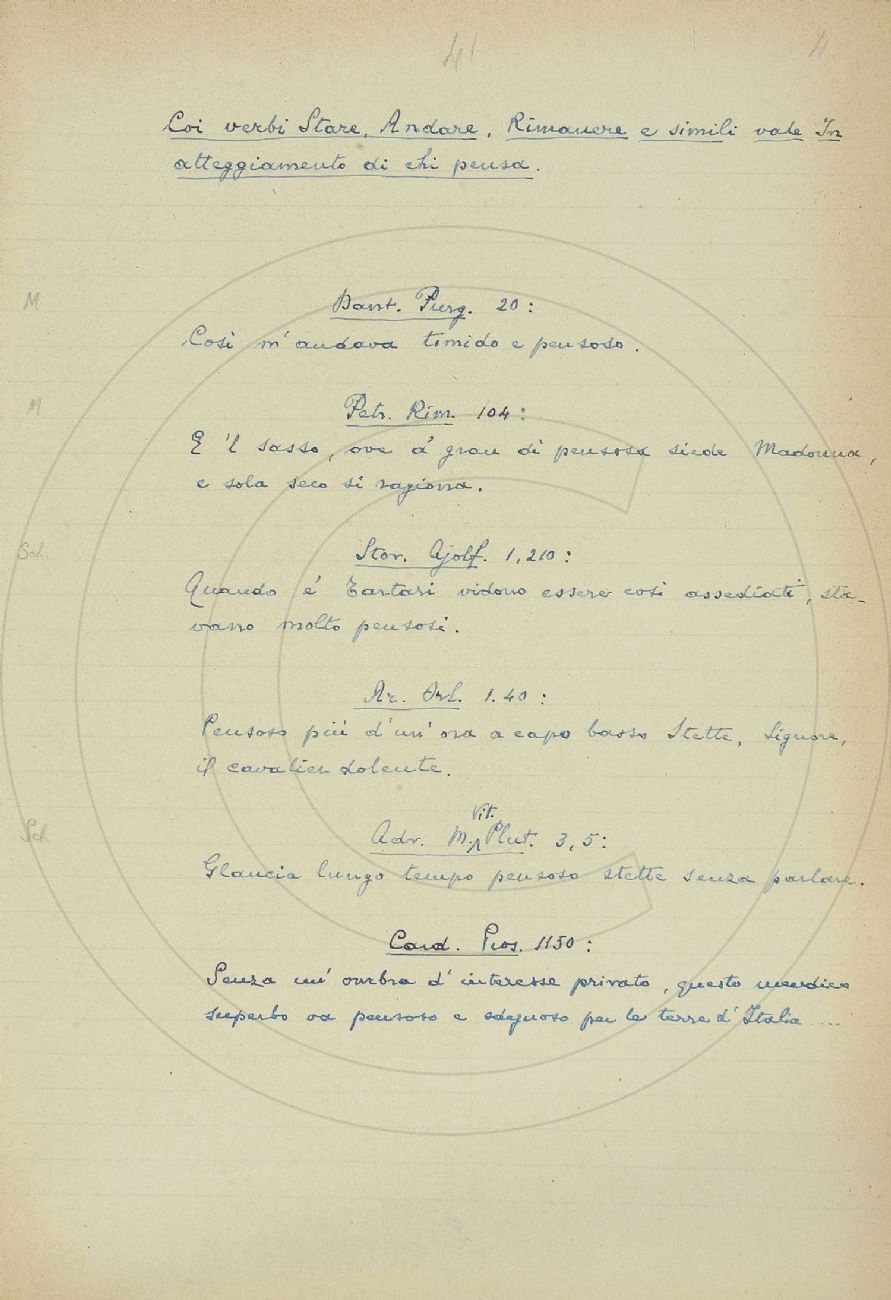 4
Coi verbi Stare, Andare, Rimanere e simili vale In
atteggiamento di chi pensa.
M
Dant. Purg. 20:
Così m'andava timido e pensoso.
M
Petr. Rim. 104:
E 'l sasso, ove a' gran dì pensosa siede Madonna,
e sola seco si ragiona.
Sch.
Stor. Ajolf. 1,210:
Quando e' Tartari vidono essere così assediati, sta-
vano molto pensosi.
Ar. Orl. 1.40:
Pensoso più d'un'ora a capo basso Stette, Signore,
il cavalier dolente.
Sch
Vit.
Adr. M. Plut. 3,5:
Glaucia lungo tempo pensoso stette senza parlare.
Card. Pros. 1150:
Senza un' ombra d'interesse privato, questo mendico
superbo va pensoso e sdegnoso per le terre d'Italia ....